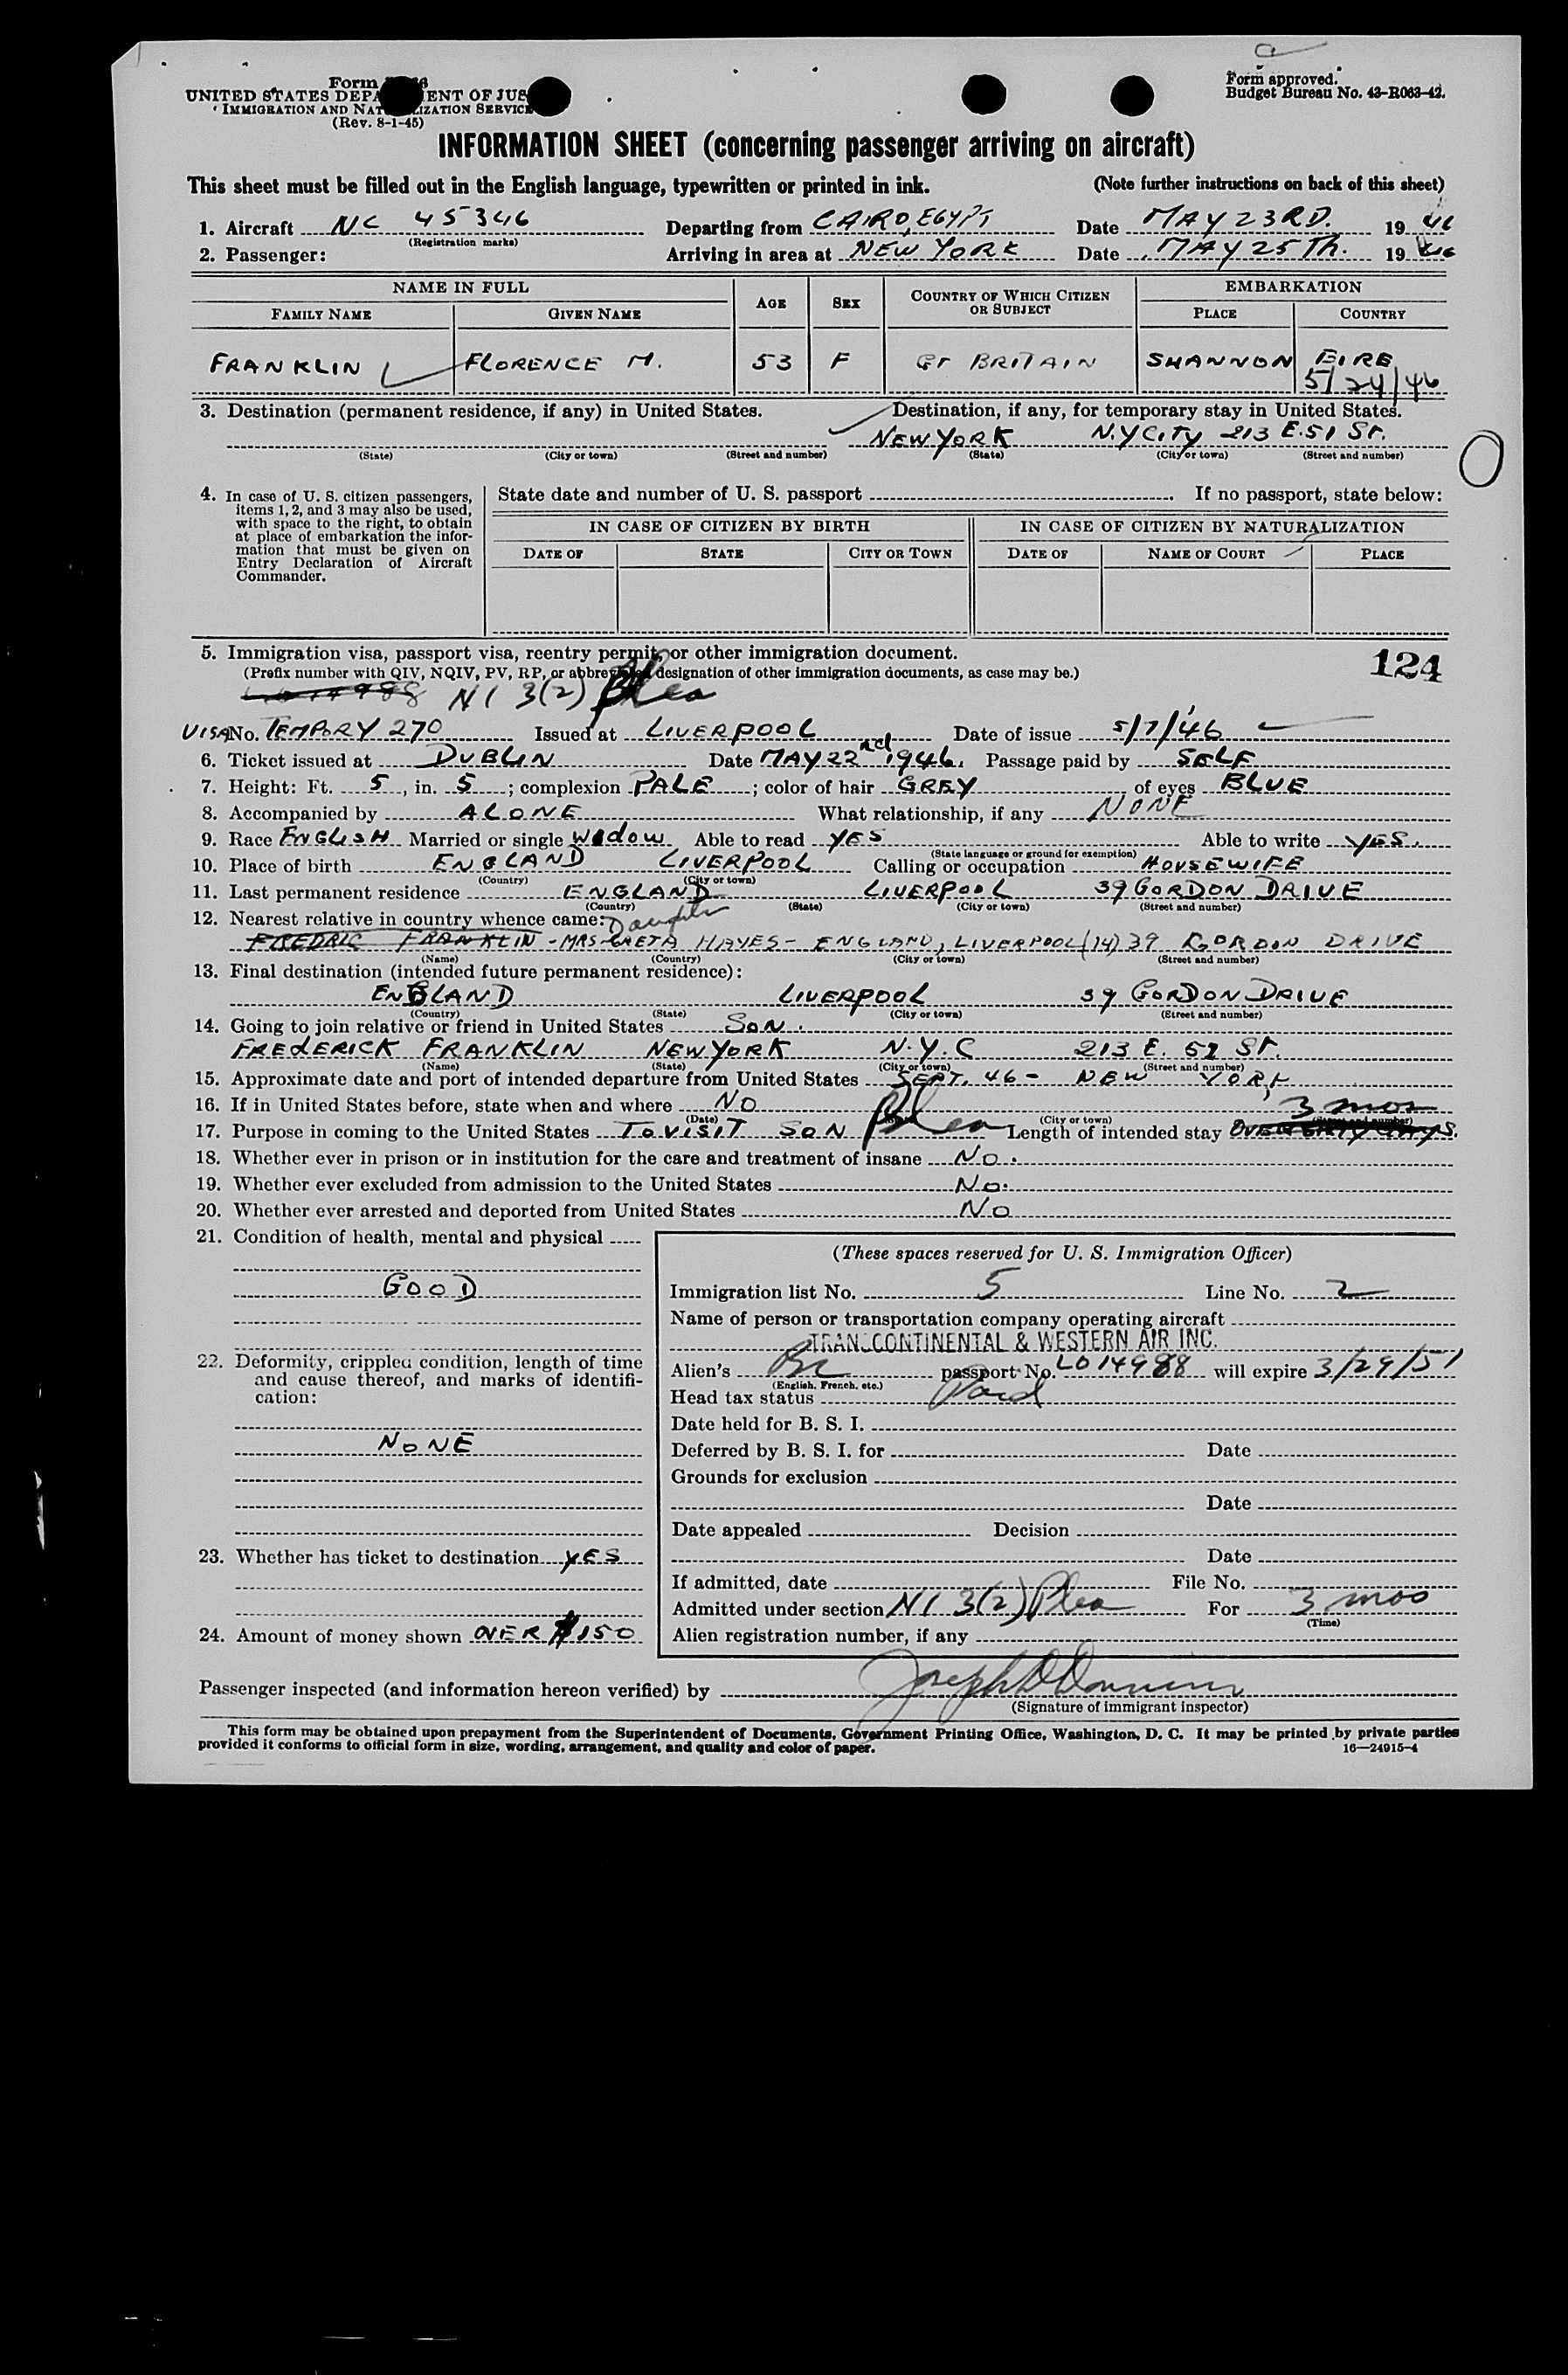 Form
UNITED STATES DEPA ENT OF JUS
IMMIGRATION AND NAT LIZATION SERVICE
(Rev. 8-1-45)
Form approved.
Budget Bureau No. 43-R063-42.
INFORMATION SHEET (concerning passenger arriving on aircraft)
This sheet must be filled out in the English language, typewritten or printed in ink. (Note further instructions on back of this sheet)
1. Aircraft NC 45346 Departing from CAIRO, EGYPT Date MAY 23RD. 1946
(Registration marks)
2. Passenger: Arriving in area at NEW YORK Date MAY 25Th. 1946
NAME IN FULL AGE SEX COUNTRY OF WHICH CITIZEN OR SUBJECT EMBARKATION
FAMILY NAME GIVEN NAME PLACE COUNTRY
FRANKLIN FLORENCE M. 53 F GT BRITAIN SHANNON EIRE
5/24/46
3. Destination (permanent residence, if any) in United States. Destination, if any, for temporary stay in United States.
NEW YORK N.Y CITY 213 E.51 ST.
(State) (City or town) (Street and number) (State) (City or town) (Street and number)
4. In case of U. S. citizen passengers, items 1, 2, and 3 may also be used, with space to the right, to obtain at place of embarkation the information that must be given on Entry Declaration of Aircraft Commander.
State date and number of U. S. passport If no passport, state below:
IN CASE OF CITIZEN BY BIRTH IN CASE OF CITIZEN BY NATURALIZATION
DATE OF STATE CITY OR TOWN DATE OF NAME OF COURT PLACE
5. Immigration visa, passport visa, reentry permit, or other immigration document.
(Prefix number with QIV, NQIV, PV, RP, or abbreviated designation of other immigration documents, as case may be.)
124
NI 3(2) Plea
VISA No. TEMPORY 270 Issued at LIVERPOOL Date of issue 5/7/46
6. Ticket issued at DUBLIN Date MAY 22nd 1946. Passage paid by SELF
7. Height: Ft. 5, in. 5; complexion PALE; color of hair GREY of eyes BLUE
8. Accompanied by ALONE What relationship, if any NONE
9. Race ENGLISH Married or single Widow Able to read YES Able to write YES.
(State language or ground for exemption)
10. Place of birth ENGLAND LIVERPOOL Calling or occupation HOUSEWIFE
(Country) (City or town)
11. Last permanent residence ENGLAND LIVERPOOL 39 GORDON DRIVE
(Country) (State) (City or town) (Street and number)
12. Nearest relative in country whence came: Daughter
FREDRIC FRANKLIN - MRS GRETA HAYES - ENGLAND, LIVERPOOL (14) 39 GORDON DRIVE
(Name) (Country) (City or town) (Street and number)
13. Final destination (intended future permanent residence):
ENGLAND LIVERPOOL 39 GORDON DRIVE
(Country) (State) (City or town) (Street and number)
14. Going to join relative or friend in United States SON.
FREDERICK FRANKLIN NEW YORK N.Y.C 213 E. 51 ST.
(Name) (State) (City or town) (Street and number)
15. Approximate date and port of intended departure from United States SEPT. 46 - NEW YORK
16. If in United States before, state when and where NO
(Date) (City or town) (Street and number)
3 mos
17. Purpose in coming to the United States TO VISIT SON Plea Length of intended stay
18. Whether ever in prison or in institution for the care and treatment of insane NO.
19. Whether ever excluded from admission to the United States NO.
20. Whether ever arrested and deported from United States NO
21. Condition of health, mental and physical
GOOD
22. Deformity, crippled condition, length of time and cause thereof, and marks of identification:
NONE
23. Whether has ticket to destination YES
24. Amount of money shown OVER $150
(These spaces reserved for U. S. Immigration Officer)
Immigration list No. 5 Line No. 2
Name of person or transportation company operating aircraft
TRANSCONTINENTAL & WESTERN AIR INC.
Alien's Br passport No. LO 14988 will expire 3/29/51
(English, French, etc.)
Head tax status Paid
Date held for B. S. I.
Deferred by B. S. I. for Date
Grounds for exclusion
Date
Date appealed Decision
Date
If admitted, date File No.
Admitted under section NI 3(2) Plea For 3 mos
(Time)
Alien registration number, if any
Passenger inspected (and information hereon verified) by
(Signature of immigrant inspector)
This form may be obtained upon prepayment from the Superintendent of Documents, Government Printing Office, Washington, D. C. It may be printed by private parties
provided it conforms to official form in size, wording, arrangement, and quality and color of paper. 16—24915-4